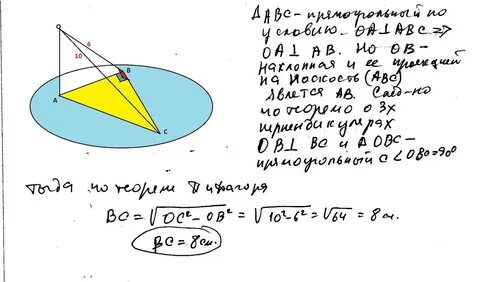 O
6
10
B
A
C
△ABC-прямоугольный по
условию. OA⊥ABC ⇒
OA⊥AB. Но OB-
наклонная и ее проекцией
на плоскость (ABC)
является AB. След-но
по теореме о 3х
перпендикулярах
OB⊥BC и △OBC-
прямоугольный с ∠OBC=90°
Тогда по теореме Пифагора
BC = √OC²-OB² = √10²-6² = √64 = 8 см.
BC = 8 см.